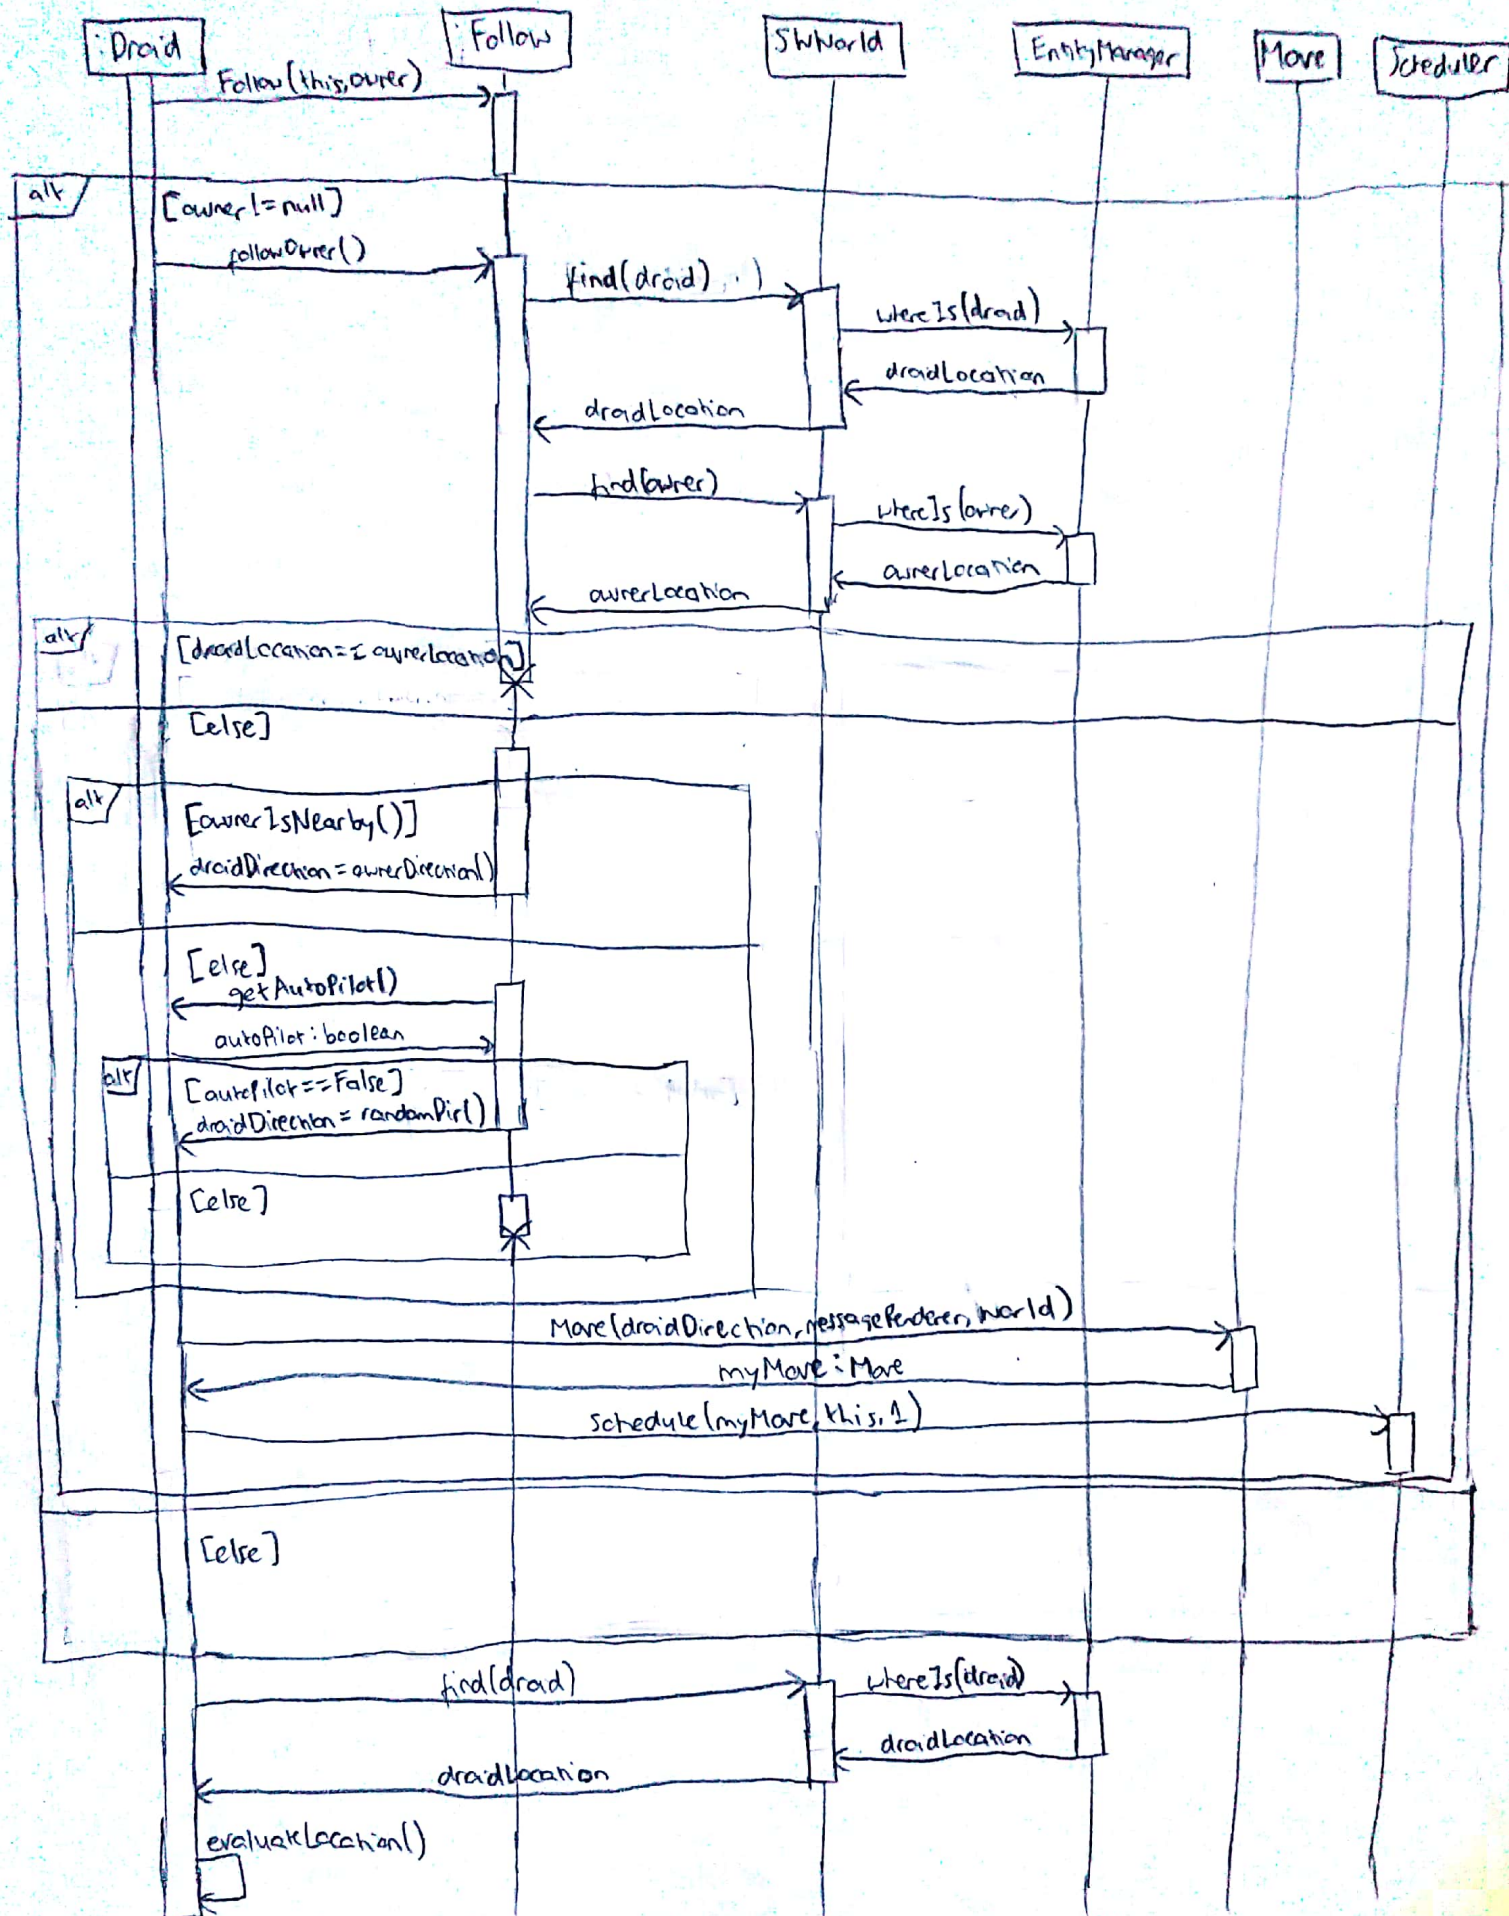 :Droid
:Follow
SWWorld
EntityManager
Move
Scheduler
Follow(this,owner)
alt
[owner!=null]
followOwner()
find(droid)
whereIs(droid)
droidLocation
droidLocation
find(owner)
whereIs(owner)
ownerLocation
ownerLocation
alt
[droidLocation== ownerLocation]
[else]
alt
[ownerIsNearby()]
droidDirection=ownerDirection()
[else]
getAutoPilot()
autoPilot:boolean
alt
[autoPilot==False]
droidDirection= randomDir()
[else]
Move(droidDirection,messageRenderer,world)
myMove:Move
schedule(myMove,this,1)
[else]
find(droid)
whereIs(droid)
droidLocation
droidLocation
evaluateLocation()